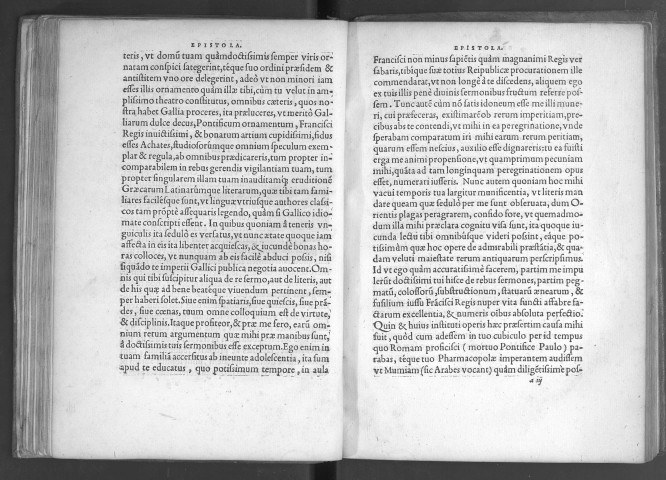 EPISTOLA.
teris, vt domũ tuam quàmdoctissimis semper viris or-
natam conspici sategerint, téque suo ordini præsidem &
antistitem vno ore delegerint, adeò vt non minori iam
esses illis ornamento quàm illæ tibi, cùm tu velut in am-
plissimo theatro constitutus, omnibus cæteris, quos no-
stra habet Gallia proceres, ita præluceres, vt meritò Gal-
liarum dulce decus, Pontificum ornamentum, Francisci
Regis inuictissimi, & bonarum artium cupidissimi, fidus
esses Achates, studiosorúmque omnium speculum exem-
plar & regula, ab omnibus prædicareris, tum propter in-
comparabilem in rebus gerendis vigilantiam tuam, tum
propter singularem illam tuam inauditamq́; eruditionẽ
Græcarum Latinarúmque literarum, quæ tibi tam fami-
liares facilésque sunt, vt linguæ vtriusque authores classi-
cos tam pròptè assequaris legendo, quàm si Gallico idio-
mate conscripti essent. In quibus quoniam à teneris vn-
guiculis ita sedulò es versatus, vt nunc ætate quoque iam
affecta in eis ita libenter acquiescas, & iucundè bonas ho-
ras colloces, vt nunquam ab eis facilè abduci possis, nisi
siquãdo te imperii Gallici publica negotia auocent. Om-
nis qui tibi suscipitur aliqua de re sermo, aut de literis, aut
de his quæ ad bene beatéque viuendum pertinent, sem-
per haberi solet. Siue enim spatiaris, siue quiescis, siue prã-
des, siue cœnas, tuum omne colloquium est de virtute,
& disciplinis. Itaque profiteor, & præ me fero, earũ om-
nium rerum argumentum quæ mihi præ manibus sunt,
à doctissimis tuis sermonibus esse exceptum. Ego enim in
tuam familiã accersitus ab ineunte adolescentia, ita sum
apud te educatus, quo potissimum tempore, in aula
EPISTOLA.
Francisci non minus sapiẽtis quàm magnanimi Regis ver
sabatis, tibique suæ totius Reipublicæ procurationem ille
commendarat, vt non longè à te discedens, aliquem ego
ex tuis illis penè diuinis sermonibus fructum referre pos-
sem. Tunc autẽ cùm nõ satis idoneum esse me illi mune-
ri, cui præfeceras, existimarẽ ob rerum imperitiam, pre-
cibus abs te contendi, vt mihi in ea peregrinatione, vnde
sperabam comparatum iri mihi earum rerum peritiam,
quarum essem nescius, auxilio esse dignareris: tu ea fuisti
erga me animi propensione, vt quamprimum pecuniam
mihi, quãta ad tam longinquam peregrinationem opus
esset, numerari iusseris. Nunc autem quoniam hoc mihi
vacui temporis tua largitur munificentia, vt literis man
dare queam quæ sedulò per me sunt obseruata, dum O-
rientis plagas peragrarem, consido fore, vt quemadmo-
dum illa mihi præclara cognitu visa sunt, ita quoque iu-
cunda lectu tibi omnibúsque videri possint, eáque po-
tissimũm quæ hoc opere de admirabili præstãtia, & qua-
dam veluti maiestate rerum antiquarum perscripsimus.
Id vt ego quàm accuratissimè facerem, partim me impu
lerũt doctissimi tui hisce de rebus sermones, partim peg-
matũ, colossorũ, substructionum, statuarũ ænearum, &
fusilium iussu Frãcisci Regis nuper vita functi affabre fa-
ctarum excellentia, & numeris oĩbus absoluta perfectio.
Quin & huius instituti operis hæc præsertim causa mihi
fuit, quòd cum adessem in tuo cubiculo per id tempus
quo Romam proficisci ( mortuo Pontifice Paulo ) pa-
rabas, téque tuo Pharmacopolæ imperantem audissem
vt Mumiam (sic Arabes vocant) quàm diligẽtissimè pos-
a iij